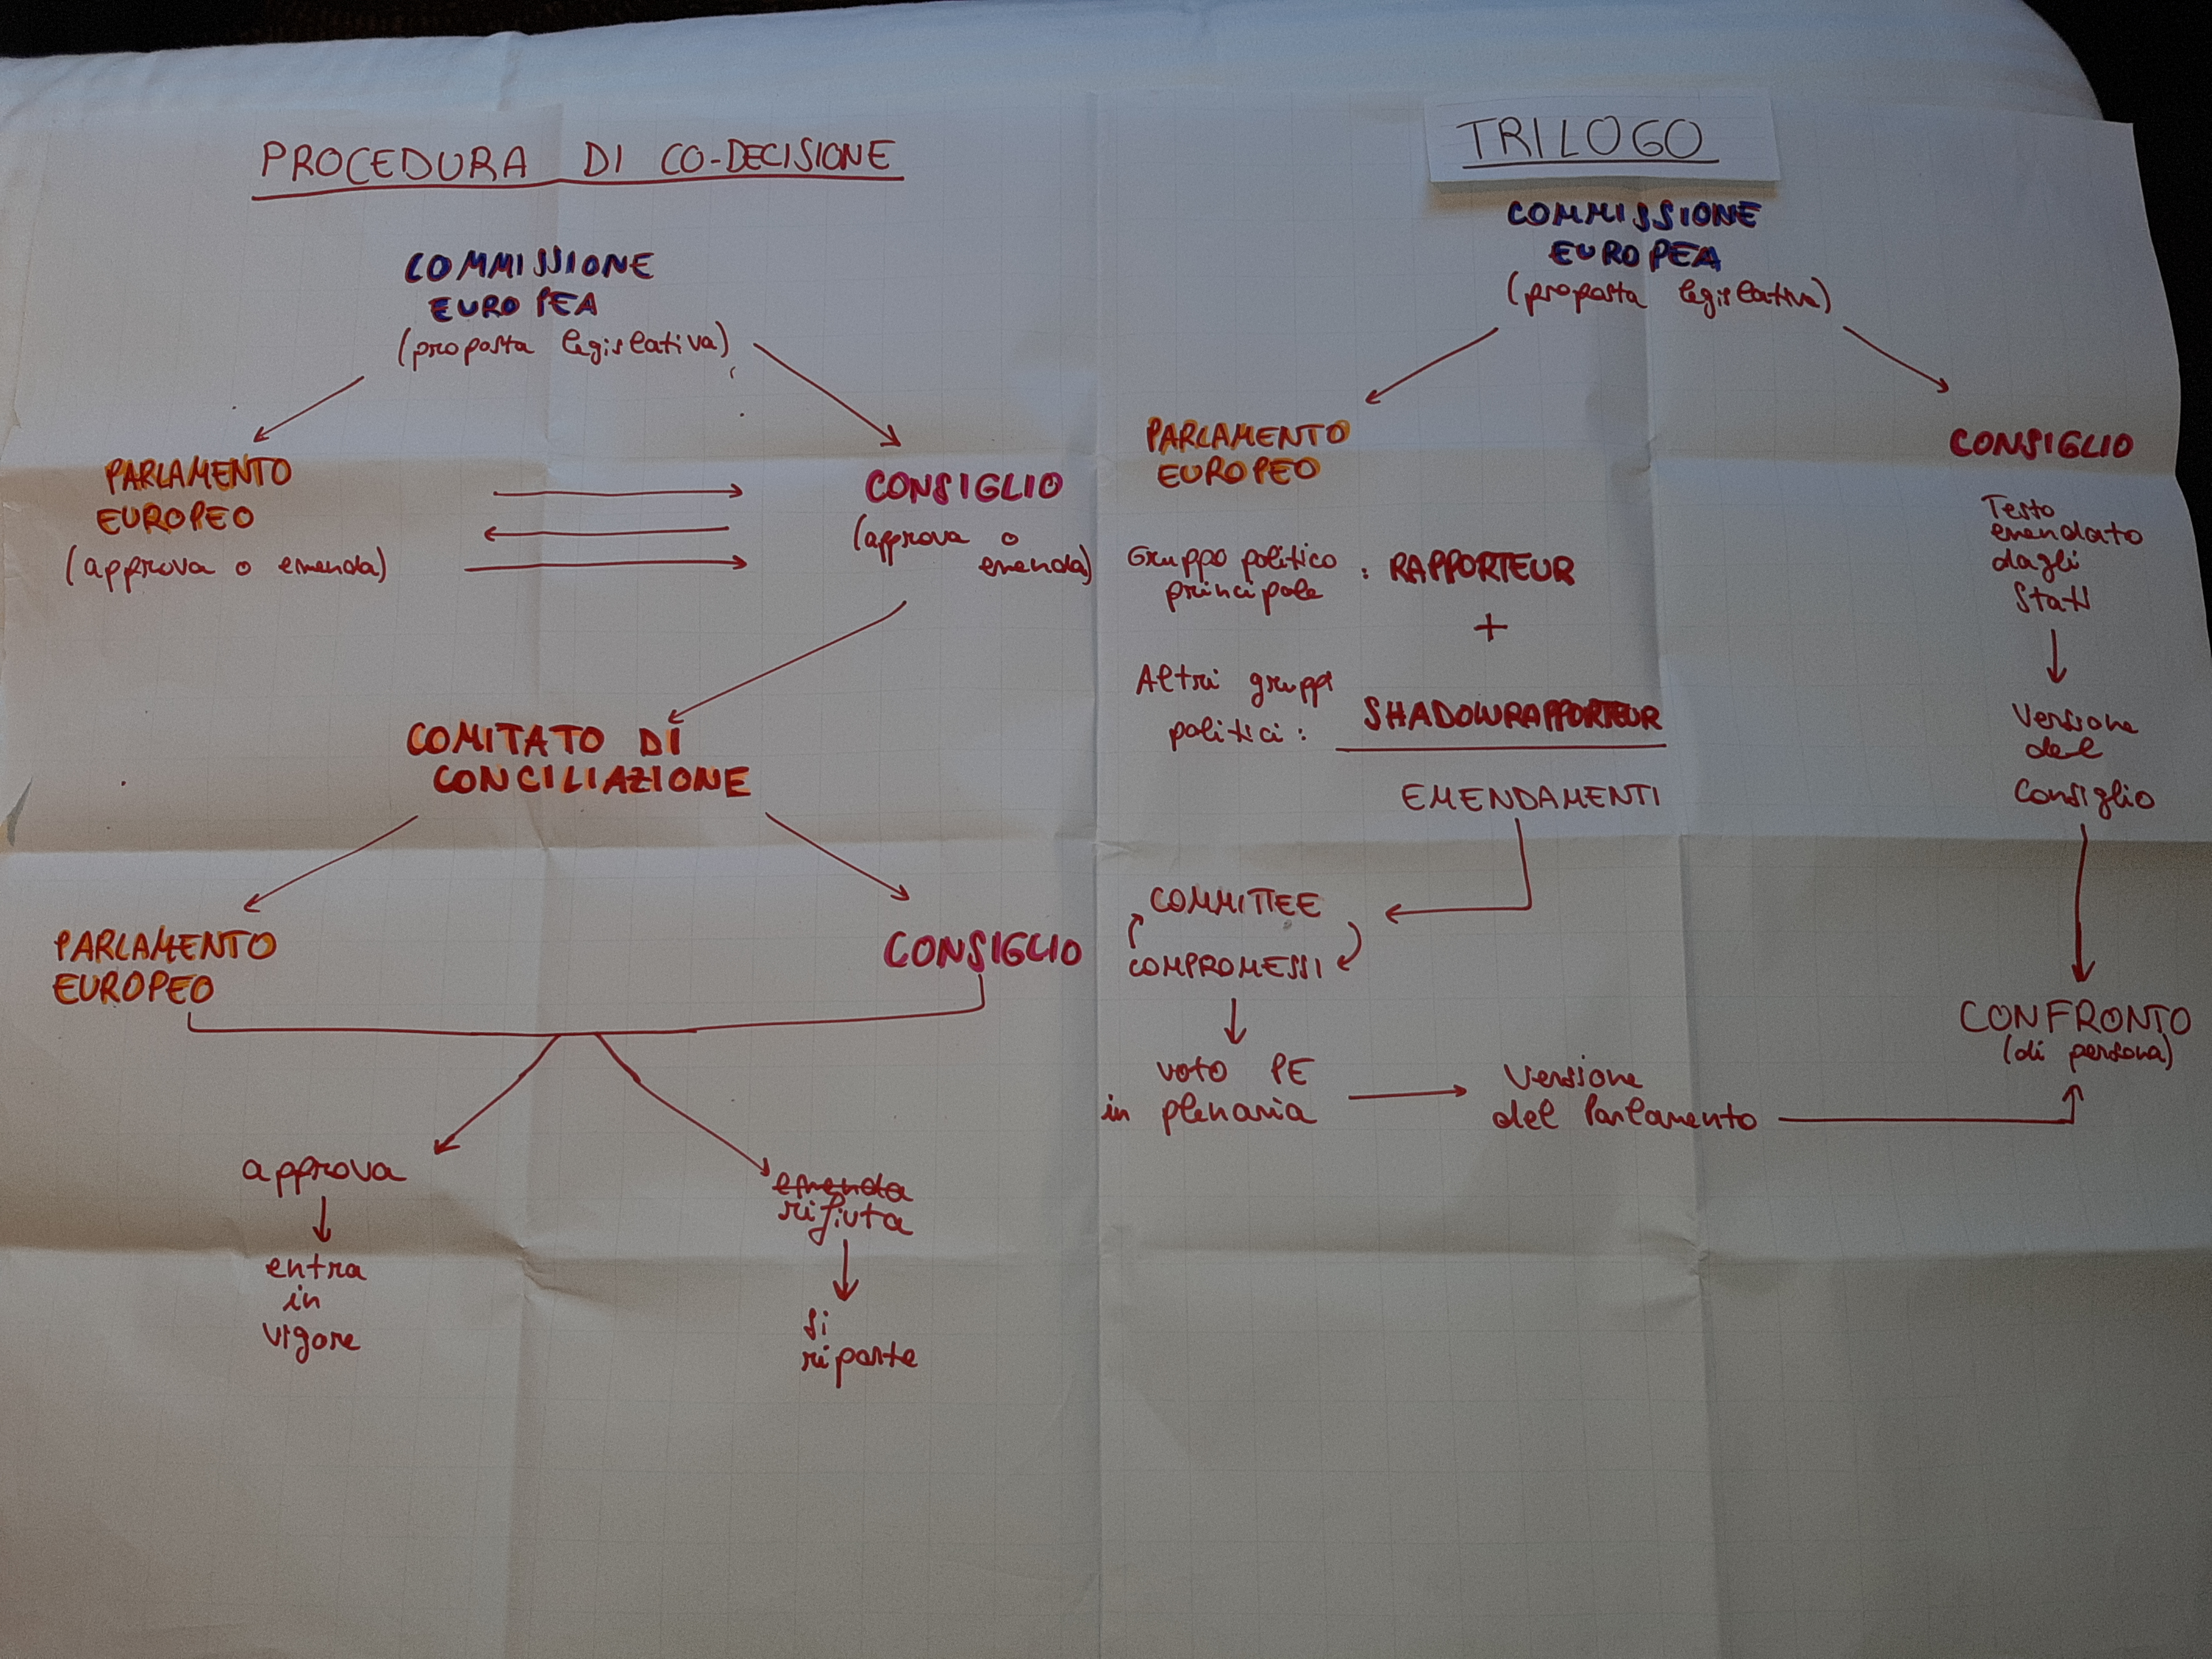 PROCEDURA DI CO-DECISIONE
COMMISSIONE
EUROPEA
(proposta legislativa)
PARLAMENTO
EUROPEO
(approva o emenda)
CONSIGLIO
(approva o
emenda)
COMITATO DI
CONCILIAZIONE
PARLAMENTO
EUROPEO
CONSIGLIO
approva
entra
in
vigore
emenda
rifiuta
si
riparte
TRILOGO
COMMISSIONE
EUROPEA
(proposta legislativa)
PARLAMENTO
EUROPEO
Gruppo politico
principale : RAPPORTEUR
+
Altri gruppi
politici : SHADOWRAPPORTEUR
EMENDAMENTI
COMMITTEE
COMPROMESSI
voto PE
in plenaria
Versione
del Parlamento
CONSIGLIO
Testo
emendato
dagli
Stati
Versione
del
Consiglio
CONFRONTO
(di persona)